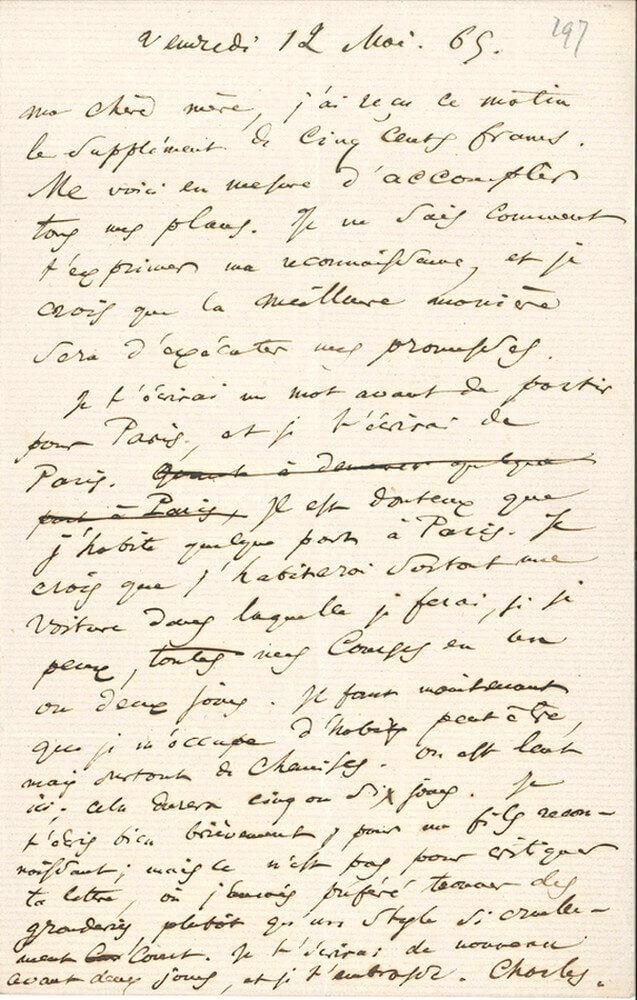 Vendredi 12 Mai. 65.
197
ma chère mère, j'ai reçu ce matin
le supplément de cinq cents francs.
Me voici en mesure d'accomplir
tous mes plans. Je ne sais comment
t'exprimer ma reconnaissance, et je
crois que la meilleure manière
sera d'exécuter mes promesses.
Je t'écrirai un mot avant de partir
pour Paris, et je t'écrirai de
Paris. Quant à demeurer quelque
part à Paris, Il est douteux que
j'habite quelque part à Paris. Je
crois que j'habiterai surtout une
voiture dans laquelle je ferai, si je
peux, toutes mes courses en un
ou deux jours. Il faut maintenant
que je m'occupe d'habits peut-être,
mais surtout de chemises. On est lent
ici. Cela durera cinq ou six jours. Je
t'écris bien brièvement, pour un fils recon-
naissant; mais ce n'est pas pour critiquer
ta lettre, où j'aurais préféré trouver des
gronderies, plutôt qu'un style si cruelle-
ment court. Je t'écrirai de nouveau
avant deux jours, et je t'embrasse. Charles.